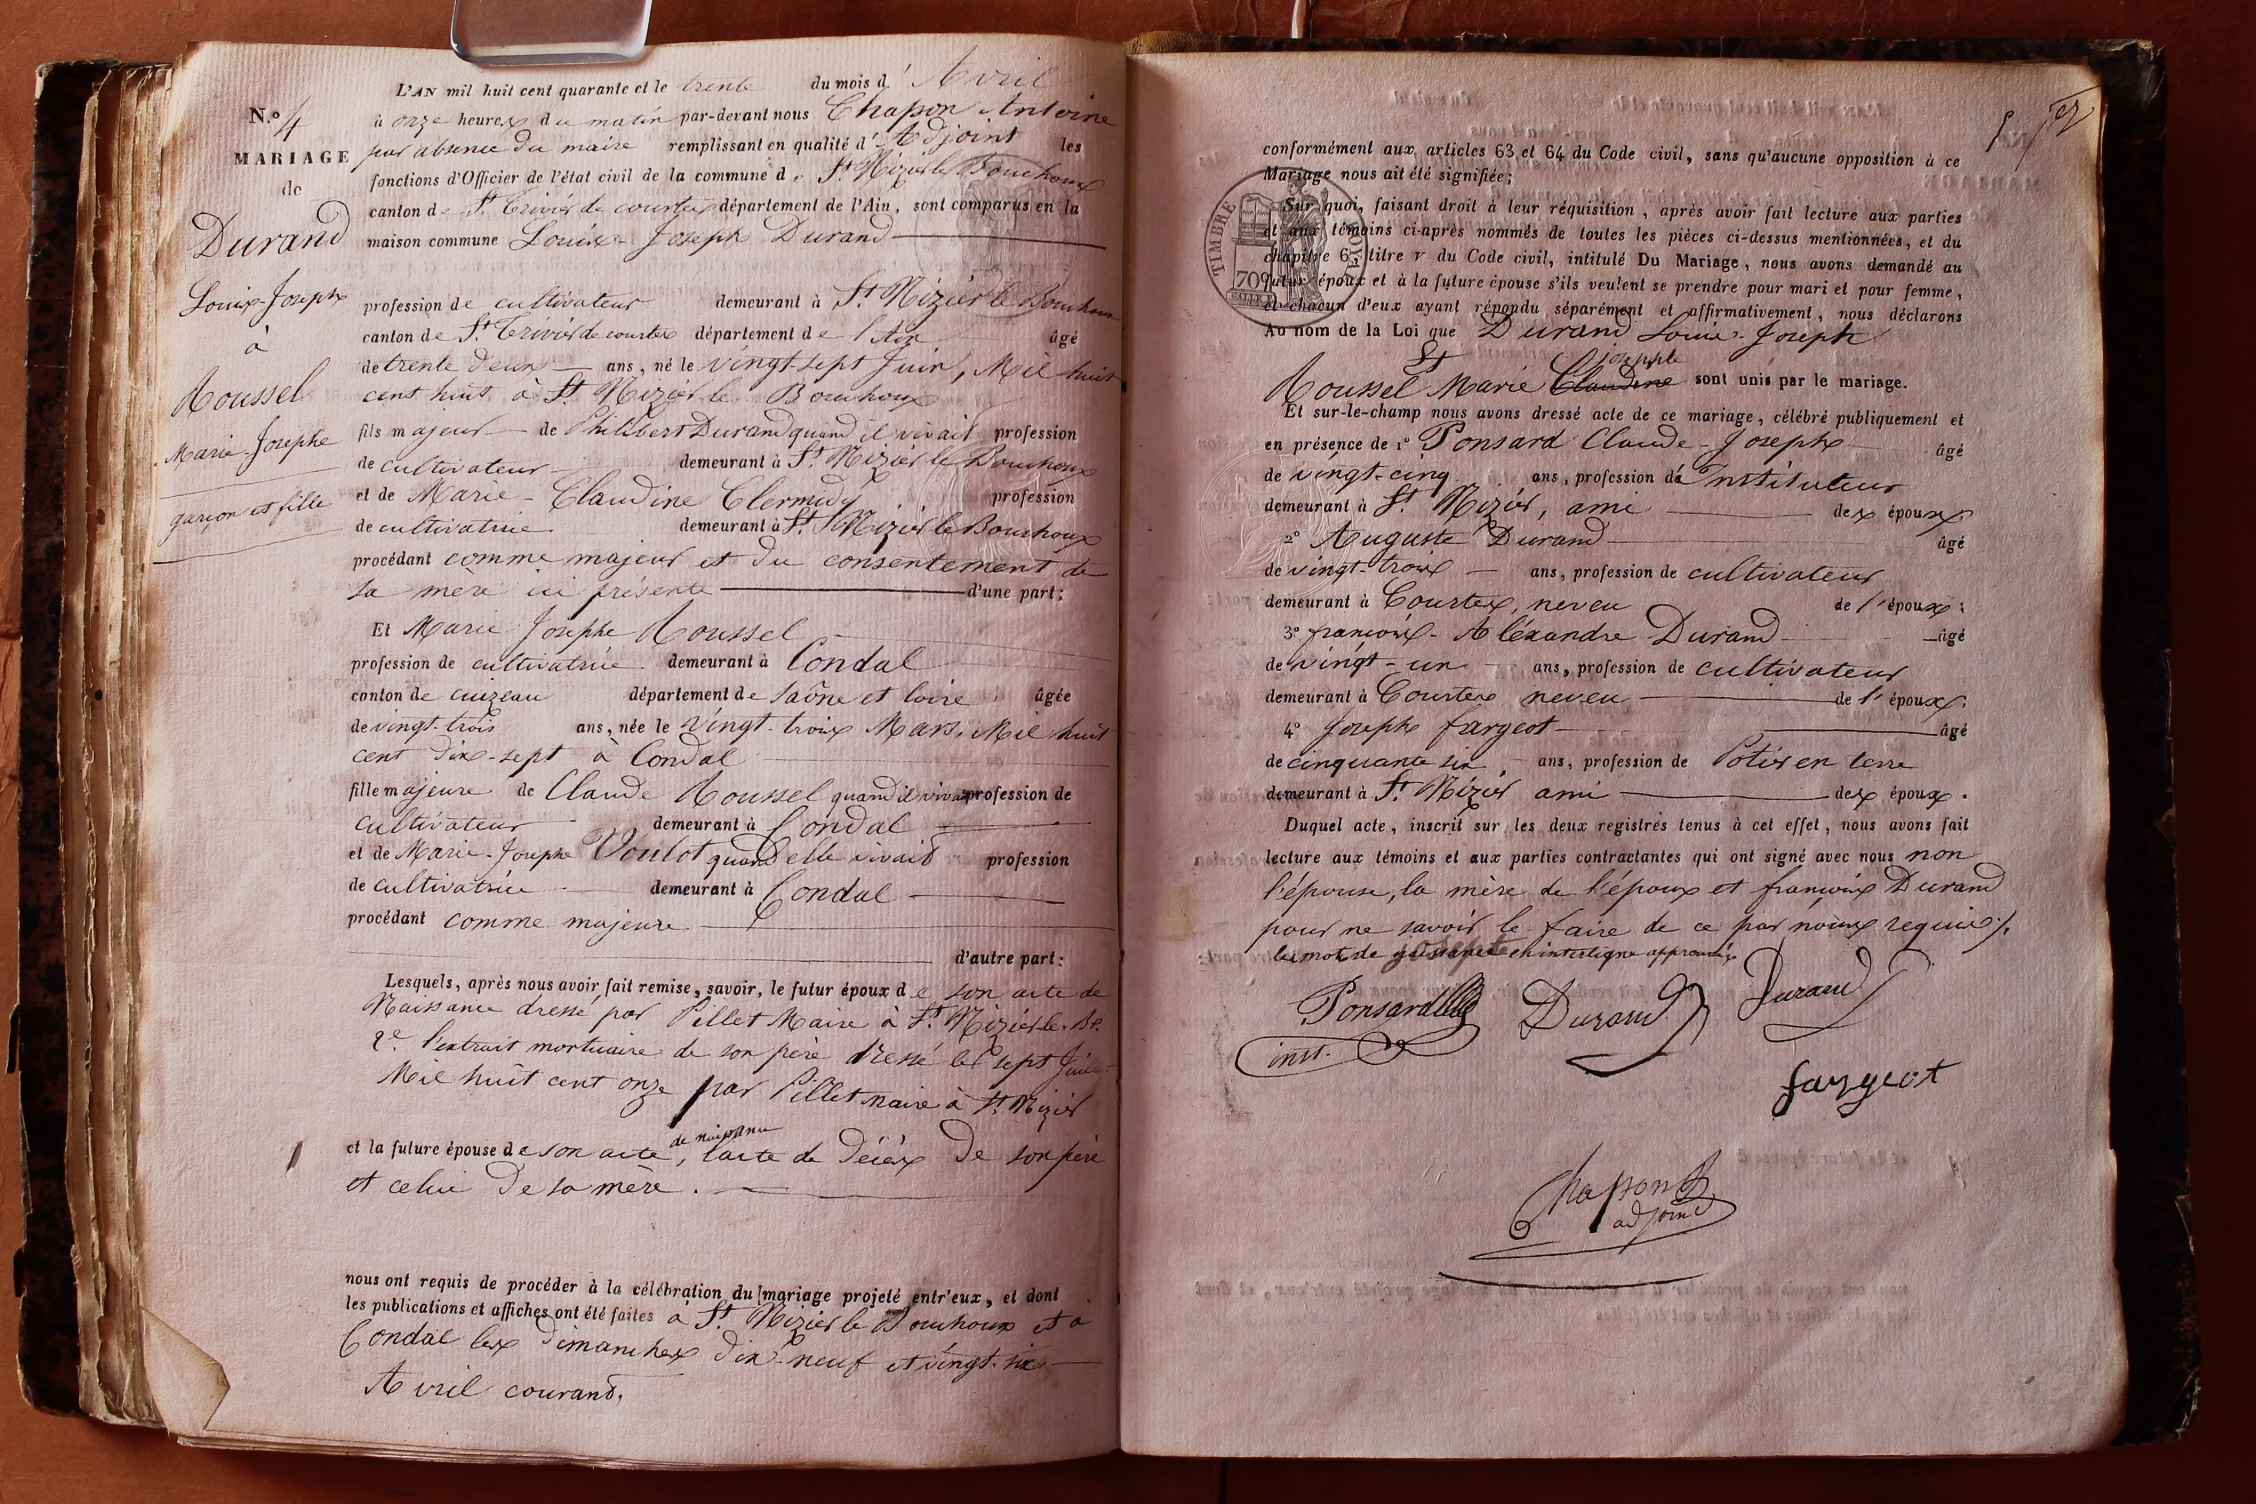 L'AN mil huit cent quarante et le trente du mois d'Avril
N.º 4
à onze heures du matin par-devant nous Chapon Antoine
par absence du maire remplissant en qualité d'Adjoint les
MARIAGE
fonctions d'Officier de l'état civil de la commune de St Nizier le Bouchoux
de
canton de St Trivier de courtes département de l'Ain, sont comparus en la
Durand
maison commune Louis-Joseph Durand
Louis-Joseph
profession de cultivateur demeurant à St Nizier le Bouchoux
à
canton de St Trivier de courtes département de l'Ain âgé
de trente deux ans, né le vingt-sept Juin, Mil huit
Roussel
cent huit à St Nizier le Bouchoux
Marie-Josephe
fils majeur de Philibert Durand quand il vivait profession
de cultivateur demeurant à St Nizier le Bouchoux
garçon et fille
et de Marie-Claudine Clermidy profession
de cultivatrice demeurant à St Nizier le Bouchoux
procédant comme majeur et du consentement de
sa mère ici présente d'une part;
Et Marie Josephe Roussel
profession de cultivatrice demeurant à Condal
canton de cuizeau département de saône et loire âgée
de vingt-trois ans, née le vingt-trois Mars, Mil huit
cent dix-sept à Condal
fille majeure de Claude Roussel quand il vivait profession de
cultivateur demeurant à Condal
et de Marie-Josephe Voulot quand elle vivait profession
de cultivatrice demeurant à Condal
procédant comme majeure
d'autre part;
Lesquels, après nous avoir fait remise, savoir, le futur époux de son acte de
Naissance dressé par Pillet Maire à St Nizier-le-Bx.
2º l'extrait mortuaire de son père dressé le sept Juillet
Mil huit cent onze par Pillet maire à St Nizier
et la future épouse de son acte de naissance, l'acte de décès de son père
et celui de sa mère.
nous ont requis de procéder à la célébration du mariage projeté entr'eux, et dont
les publications et affiches ont été faites à St Nizier le Bouchoux et à
Condal les dimanches dix-neuf et vingt-six
Avril courant.
5
conformément aux articles 63 et 64 du Code civil, sans qu'aucune opposition à ce
Mariage nous ait été signifiée;
Sur quoi, faisant droit à leur réquisition, après avoir fait lecture aux parties
et aux témoins ci-après nommés de toutes les pièces ci-dessus mentionnées, et du
chapitre 6, titre v du Code civil, intitulé Du Mariage, nous avons demandé au
futur époux et à la future épouse s'ils veulent se prendre pour mari et pour femme,
et chacun d'eux ayant répondu séparément et affirmativement, nous déclarons
TIMBRE ROYAL
70c
Au nom de la Loi que Durand Louis-Joseph
Et
josephe
Roussel Marie Claudine sont unis par le mariage.
Et sur-le-champ nous avons dressé acte de ce mariage, célébré publiquement et
en présence de 1º Ponsard Claude-Joseph âgé
de vingt-cinq ans, profession d'Instituteur
demeurant à St Nizier, ami des époux
2º Auguste Durand âgé
de vingt-trois ans, profession de cultivateur
demeurant à Courtes, neveu de l'époux;
3º françois-Aléxandre Durand âgé
de vingt-un ans, profession de cultivateur
demeurant à Courtes neveu de l'époux;
4º Joseph fargeot âgé
de cinquante six ans, profession de Potier en terre
demeurant à St Nizier ami des époux.
Duquel acte, inscrit sur les deux registres tenus à cet effet, nous avons fait
lecture aux témoins et aux parties contractantes qui ont signé avec nous non
l'épouse, la mère de l'époux et françois Durand
pour ne savoir le faire de ce par nous requis./.
les mots de naissance en interligne approuvés
Ponsard
inst.
Durand
Durand
fargeot
Chapon
adjoint